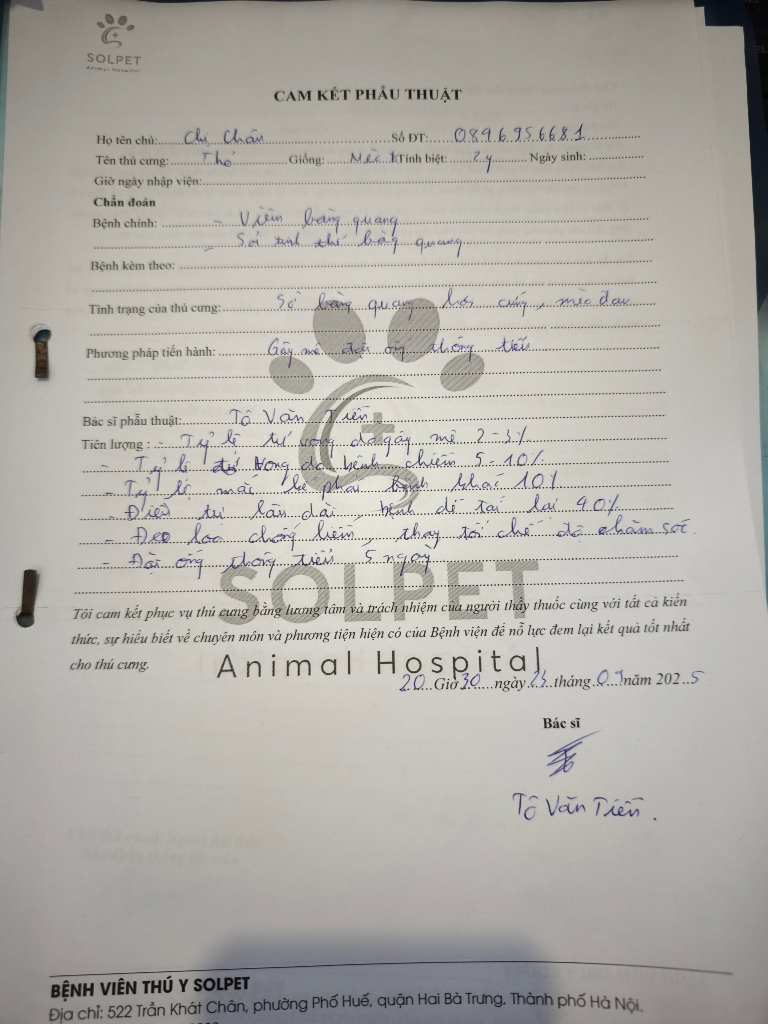 SOLPET
Animal Hospital
CAM KẾT PHẪU THUẬT
Họ tên chủ: Chị Chân Số ĐT: 0896956681
Tên thú cưng: Thỏ Giống: Mèo Tính biệt: 2y Ngày sinh:
Giờ ngày nhập viện:
Chẩn đoán
Bệnh chính: - Viêm bàng quang
- Sỏi tinh thể bàng quang
Bệnh kèm theo:
Tình trạng của thú cưng: Sờ bàng quang hơi cứng, mèo đau
Phương pháp tiến hành: Gây mê đặt ống thông tiểu
Bác sĩ phẫu thuật: Tô Văn Tiến
Tiên lượng : - Tỷ lệ tử vong do gây mê 2-3%
- Tỷ lệ tử vong do bệnh chiếm 5-10%
- Tỷ lệ mắc kế phát bệnh khác 10%
- Điều trị lâu dài, bệnh dễ tái lại 40%
- Đeo loa chống liếm, thay đổi chế độ chăm sóc.
- Đặt ống thông tiểu 5 ngày
SOLPET
Tôi cam kết phục vụ thú cưng bằng lương tâm và trách nhiệm của người thầy thuốc cùng với tất cả kiến
thức, sự hiểu biết về chuyên môn và phương tiện hiện có của Bệnh viện để nỗ lực đem lại kết quả tốt nhất
cho thú cưng.
Animal Hospital
20 Giờ 30 ngày 23 tháng 09 năm 2025
Bác sĩ
Tô Văn Tiến.
BỆNH VIỆN THÚ Y SOLPET
Địa chỉ: 522 Trần Khát Chân, phường Phố Huế, quận Hai Bà Trưng, Thành phố Hà Nội.